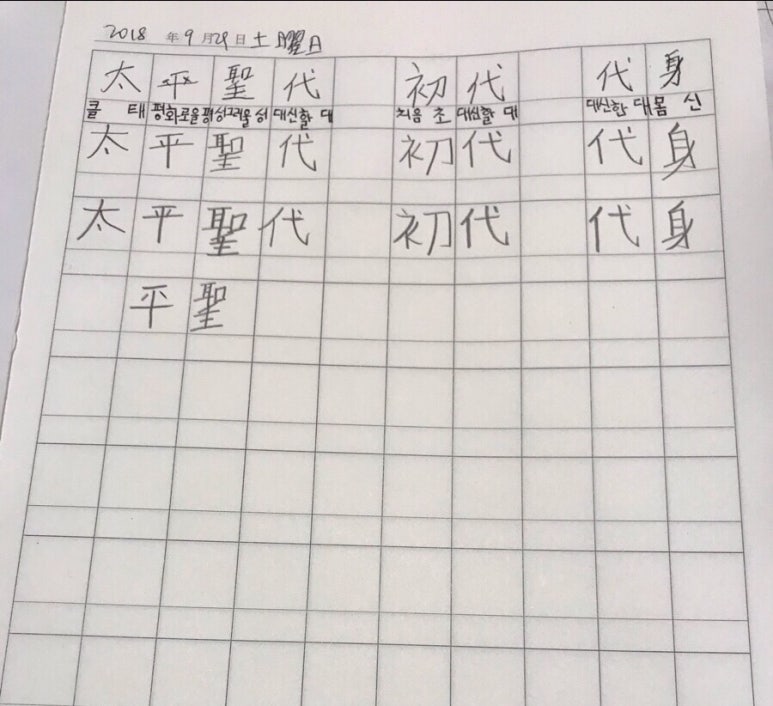 2018 年 9 月 29 日 土 曜日
太 平 聖 代 初 代 代 身
클 태 평화로울 평 성그러울 성 대신할 대 처음 초 대신할 대 대신한 대 몸 신
太 平 聖 代 初 代 代 身
太 平 聖 代 初 代 代 身
平 聖